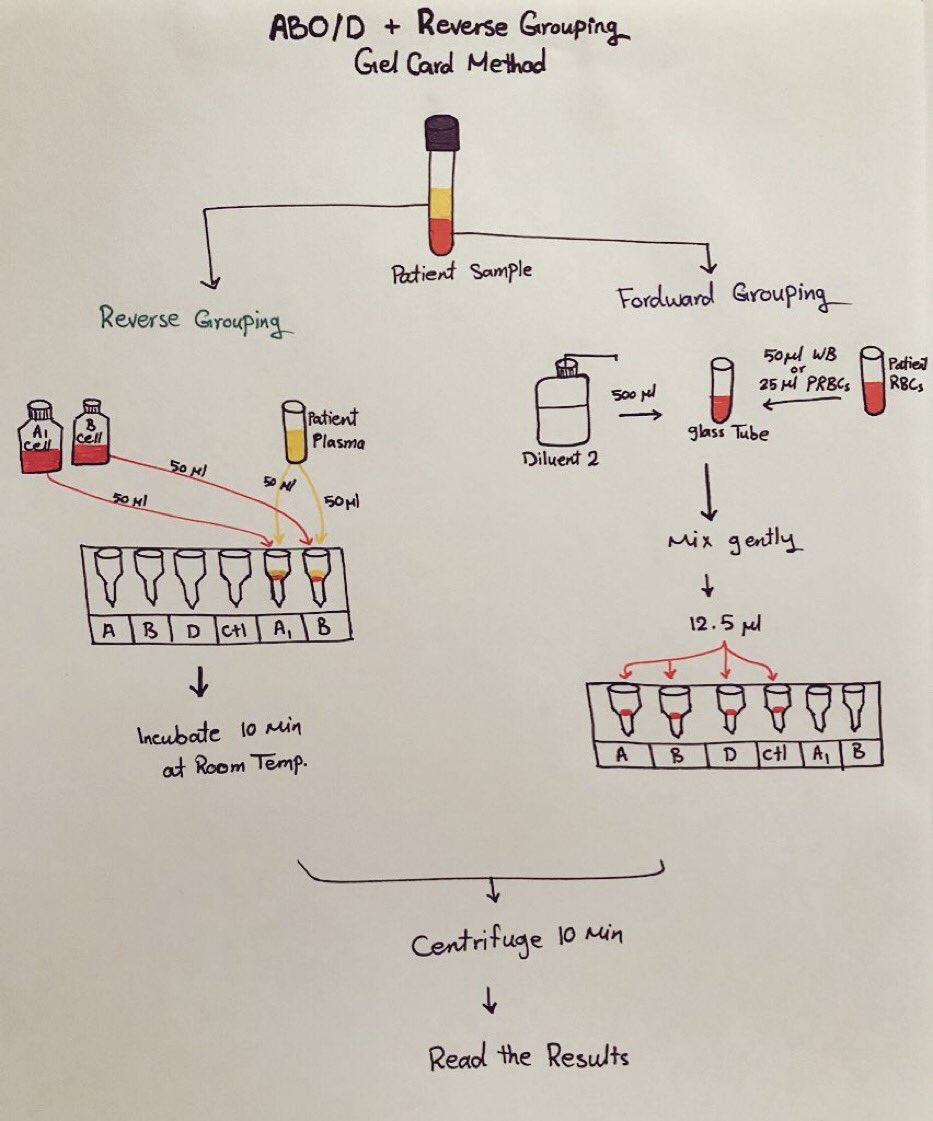 ABO/D + Reverse Grouping
Gel Card Method
Patient Sample
Reverse Grouping
A1
cell
B
cell
Patient
Plasma
50 µl
50 µl
50 µl
50 µl
A B D ctl A1 B
Incubate 10 Min
at Room Temp.
Fordward Grouping
Diluent 2
500 µl
glass Tube
50µl WB
or
25 µl PRBCs
Patient
RBCs
Mix gently
12.5 µl
A B D ctl A1 B
Centrifuge 10 Min
Read the Results